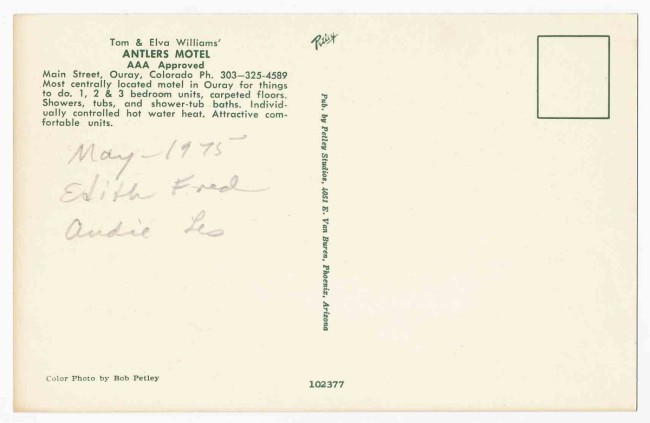 Tom & Elva Williams'
ANTLERS MOTEL
AAA Approved
Main Street, Ouray, Colorado Ph. 303—325-4589
Most centrally located motel in Ouray for things
to do. 1, 2 & 3 bedroom units, carpeted floors.
Showers, tubs, and shower-tub baths. Individ-
ually controlled hot water heat. Attractive com-
fortable units.
May-1975
Edith Fred
Audie Les
Color Photo by Bob Petley
Petley
Pub. by Petley Studios, 4051 E. Van Buren, Phoenix, Arizona
102377